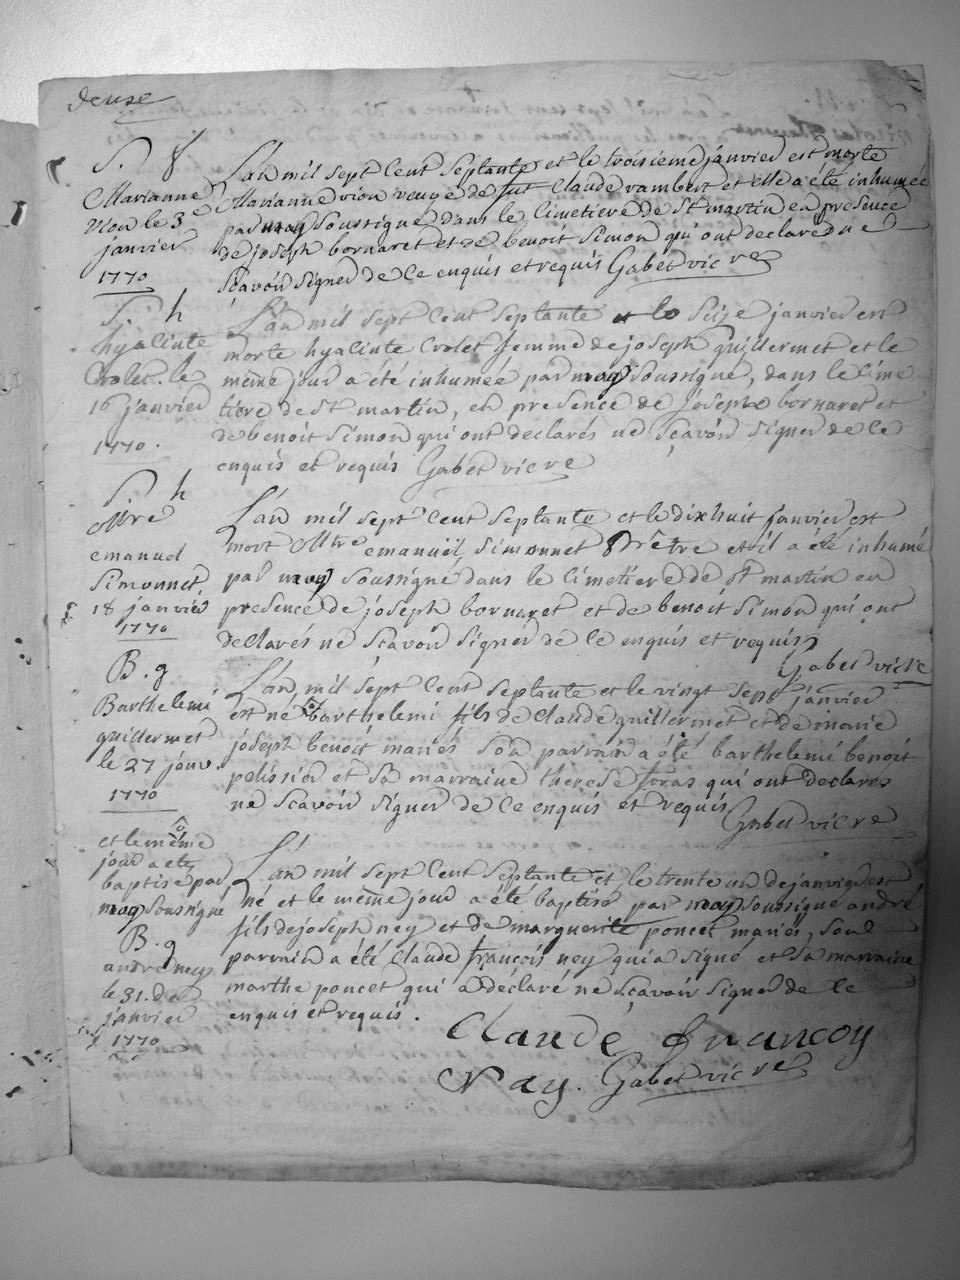 deuxe
S. f
Marianne
vion le 3e
janvier
1770
L'an mil sept cent septante et le troisieme janvier est morte
Marianne vion veuge de fut Claude vambert et elle a été inhumée
par moy soussigné dans le cimetiere de St martin en presence
de joseph bornaret et de benoit simon qu'ont declaré ne
scavoir signer de ce enquis et requis Gabet vicre
S. h
hyacinte
Crolet le
16 janvier
1770.
L'an mil sept cent septante et le seize janvier est
morte hyacinte Crolet femme de joseph guillermet et le
même jour a été inhumée par moy soussigné, dans le cime
tiere de St martin, en presence de joseph bornaret et
de benoit simon qui ont declarés ne scavoir signer de ce
enquis et requis Gabet vicre
S. h
Mtre
emanuel
Simonnet
18 janvier
1770
L'an mil sept cent septante et le dixhuit janvier est
mort Mtre emanuël Simonnet Prêtre et il a été inhumé
par moy soussigné dans le cimetiere de St martin en
presence de joseph bornaret et de benoit simon qui ont
declarés ne scavoir signer de ce enquis et requis
Gabet vicre
B. g
Barthelemi
guillermet
le 27 janv
1770
L'an mil sept cent septante et le vingt sept janvier
est né barthelemi fils de Claude guillermet et de marie
joseph benoit mariés son parrain a été barthelemi benoit
pelissier et sa marraine therese foras qui ont declarés
ne scavoir signer de ce enquis et requis
Gabet vicre
et le même
jour a été
baptisé par
moy soussigné
B. g
andré ney
le 31. de
janvier
1770
L'an mil sept cent septante et le trente un de janvier est
né et le même jour a été baptisé par moy soussigné andré
fils de joseph ney et de marguerite poncet mariés, son
parrain a été Claude françois ney qui a signé et sa marraine
marthe poncet qui a déclaré ne scavoir signer de ce
enquis et requis.
Claude françoy
Nay. Gabet vicre